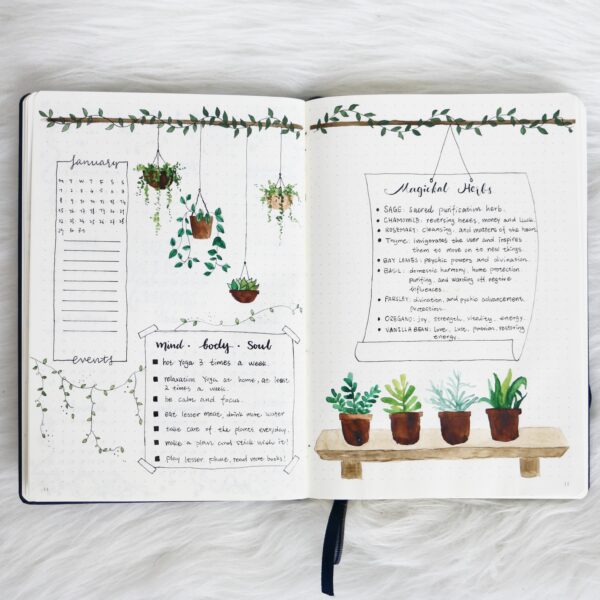 January
M T W T F S S
1 2 3 4 5 6 7
8 9 10 11 12 13 14
15 16 17 18 19 20 21
22 23 24 25 26 27 28
29 30 31
events
mind . body . Soul
hot Yoga 3 times a week.
relaxation Yoga at home, at least
2 times a week.
be calm and focus.
eat lesser meat, drink more water
take care of the plants everyday.
make a plan and stick with it!
play lesser phone, read more books!
Magickal Herbs
SAGE: Sacred purification herb.
CHAMOMILE: reversing hexes, money and luck.
ROSEMARY: Cleansing, and matters of the heart.
Thyme: invigorates the user and inspires
them to move on to new things.
BAY LEAVES: psychic powers and divination.
BASIL: domestic harmony, home protection
purifing, and warding off negative
influences.
PARSLEY: divination, and psychic advancement,
protection.
OREGANO: joy, strength, vitality, energy.
VANILLA BEAN: love, lust, passion, restoring
energy.
11